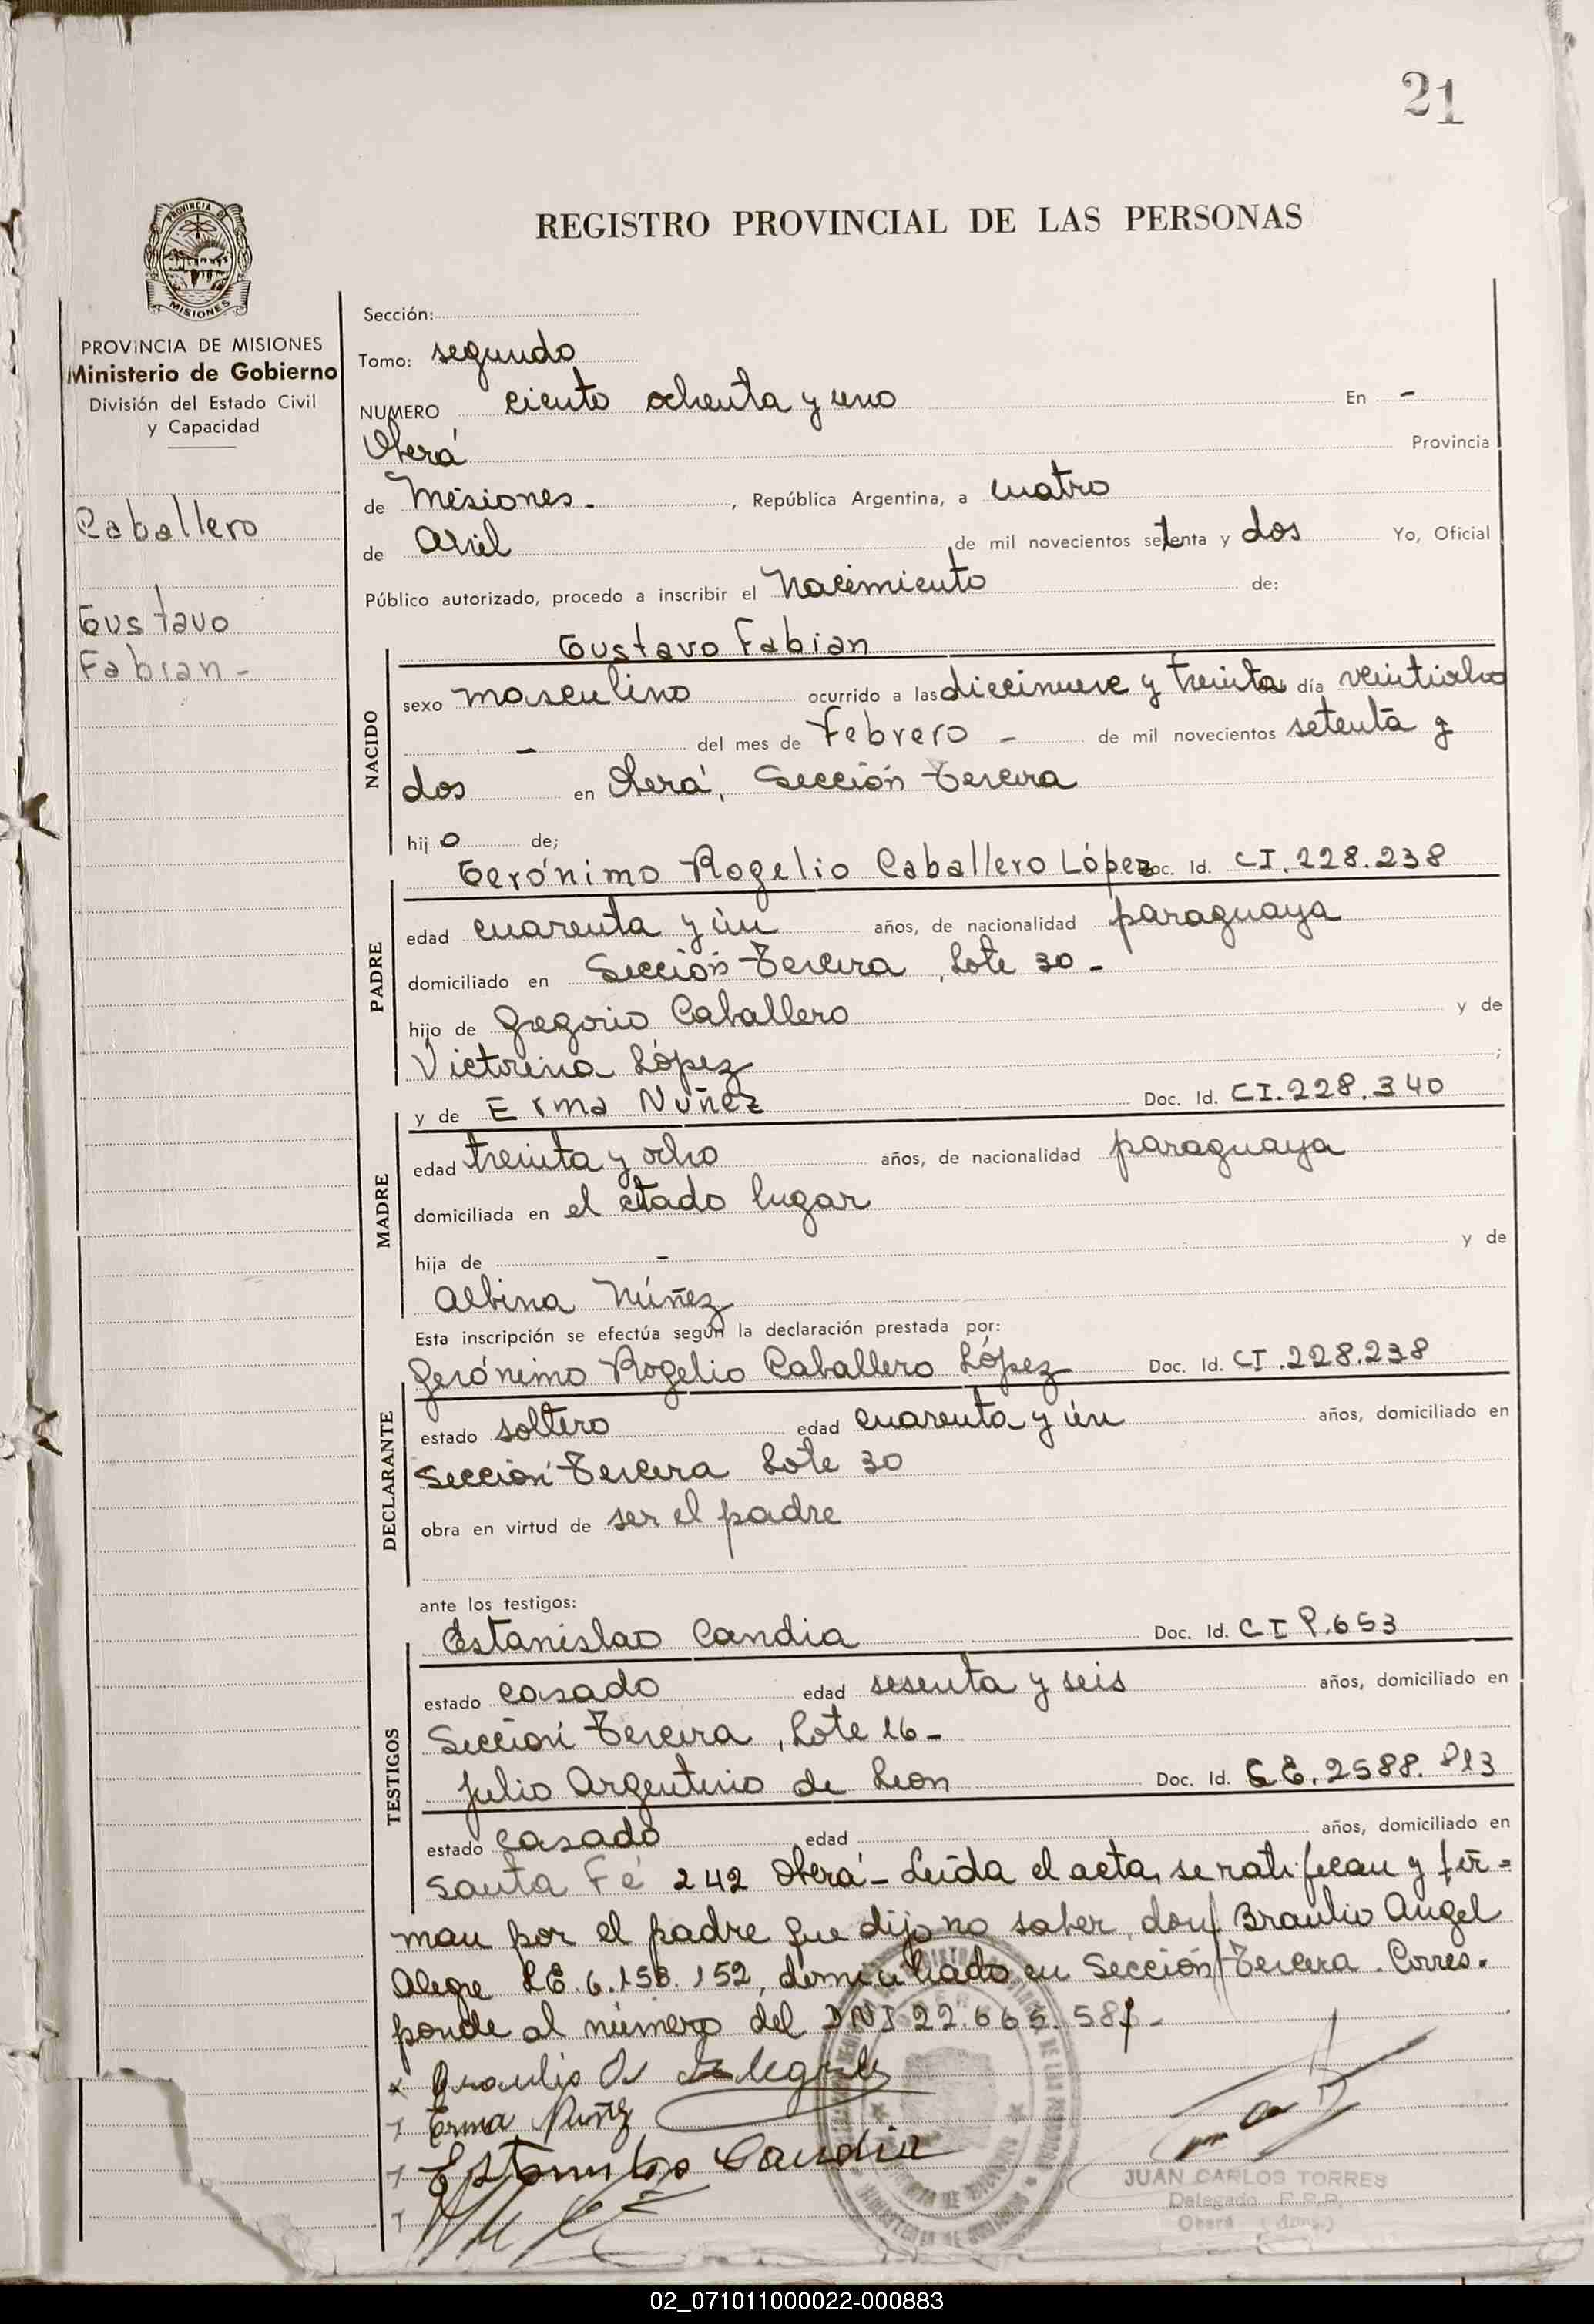 21
PROVINCIA D
MISIONES
REGISTRO PROVINCIAL DE LAS PERSONAS
PROVINCIA DE MISIONES
Ministerio de Gobierno
División del Estado Civil
y Capacidad
Caballero
Gustavo
Fabian-
Sección:
Tomo: segundo
NUMERO ciento ochenta y uno En -
Oberá Provincia
de Misiones. , República Argentina, a cuatro
de Abril de mil novecientos setenta y dos Yo, Oficial
Público autorizado, procedo a inscribir el Nacimiento de:
Gustavo Fabian
NACIDO
sexo masculino ocurrido a las diecinueve y treinta día veintiocho
- del mes de Febrero - de mil novecientos setenta y
dos en Oberá, Sección Tercera
hijo de;
Gerónimo Rogelio Caballero López Doc. Id. CI. 228.238
PADRE
edad cuarenta y ún años, de nacionalidad paraguaya
domiciliado en Sección Tercera, Lote 30-
hijo de Gregorio Caballero y de
Victorina López ;
y de Erma Núñez Doc. Id. CI. 228.340
MADRE
edad treinta y ocho años, de nacionalidad paraguaya
domiciliada en el citado lugar
hija de - y de
Albina Núñez
Esta inscripción se efectúa según la declaración prestada por:
Gerónimo Rogelio Caballero López Doc. Id. CI. 228.238
DECLARANTE
estado soltero edad cuarenta y ún años, domiciliado en
Sección Tercera Lote 30
obra en virtud de ser el padre
ante los testigos:
Estanislao Candia Doc. Id. CI P.653
TESTIGOS
estado casado edad sesenta y seis años, domiciliado en
Sección Tercera, Lote 16-
Julio Argentino de Leon Doc. Id. 2588. 813
estado casado edad años, domiciliado en
Santa Fé 242 Oberá- Leída el acta, se ratifican y fir=
man por el padre que dijo no saber, don Braulio Angel
Alegre LE. 6.158.152, domiciliado en Sección Tercera. Corres.
ponde al número del DNI 22.665.587-
x Braulio A Alegre
Erma Nuñez
Estanislao Candia
JUAN CARLOS TORRES
Delegado R.P.P.
Oberá
02_071011000022-000883